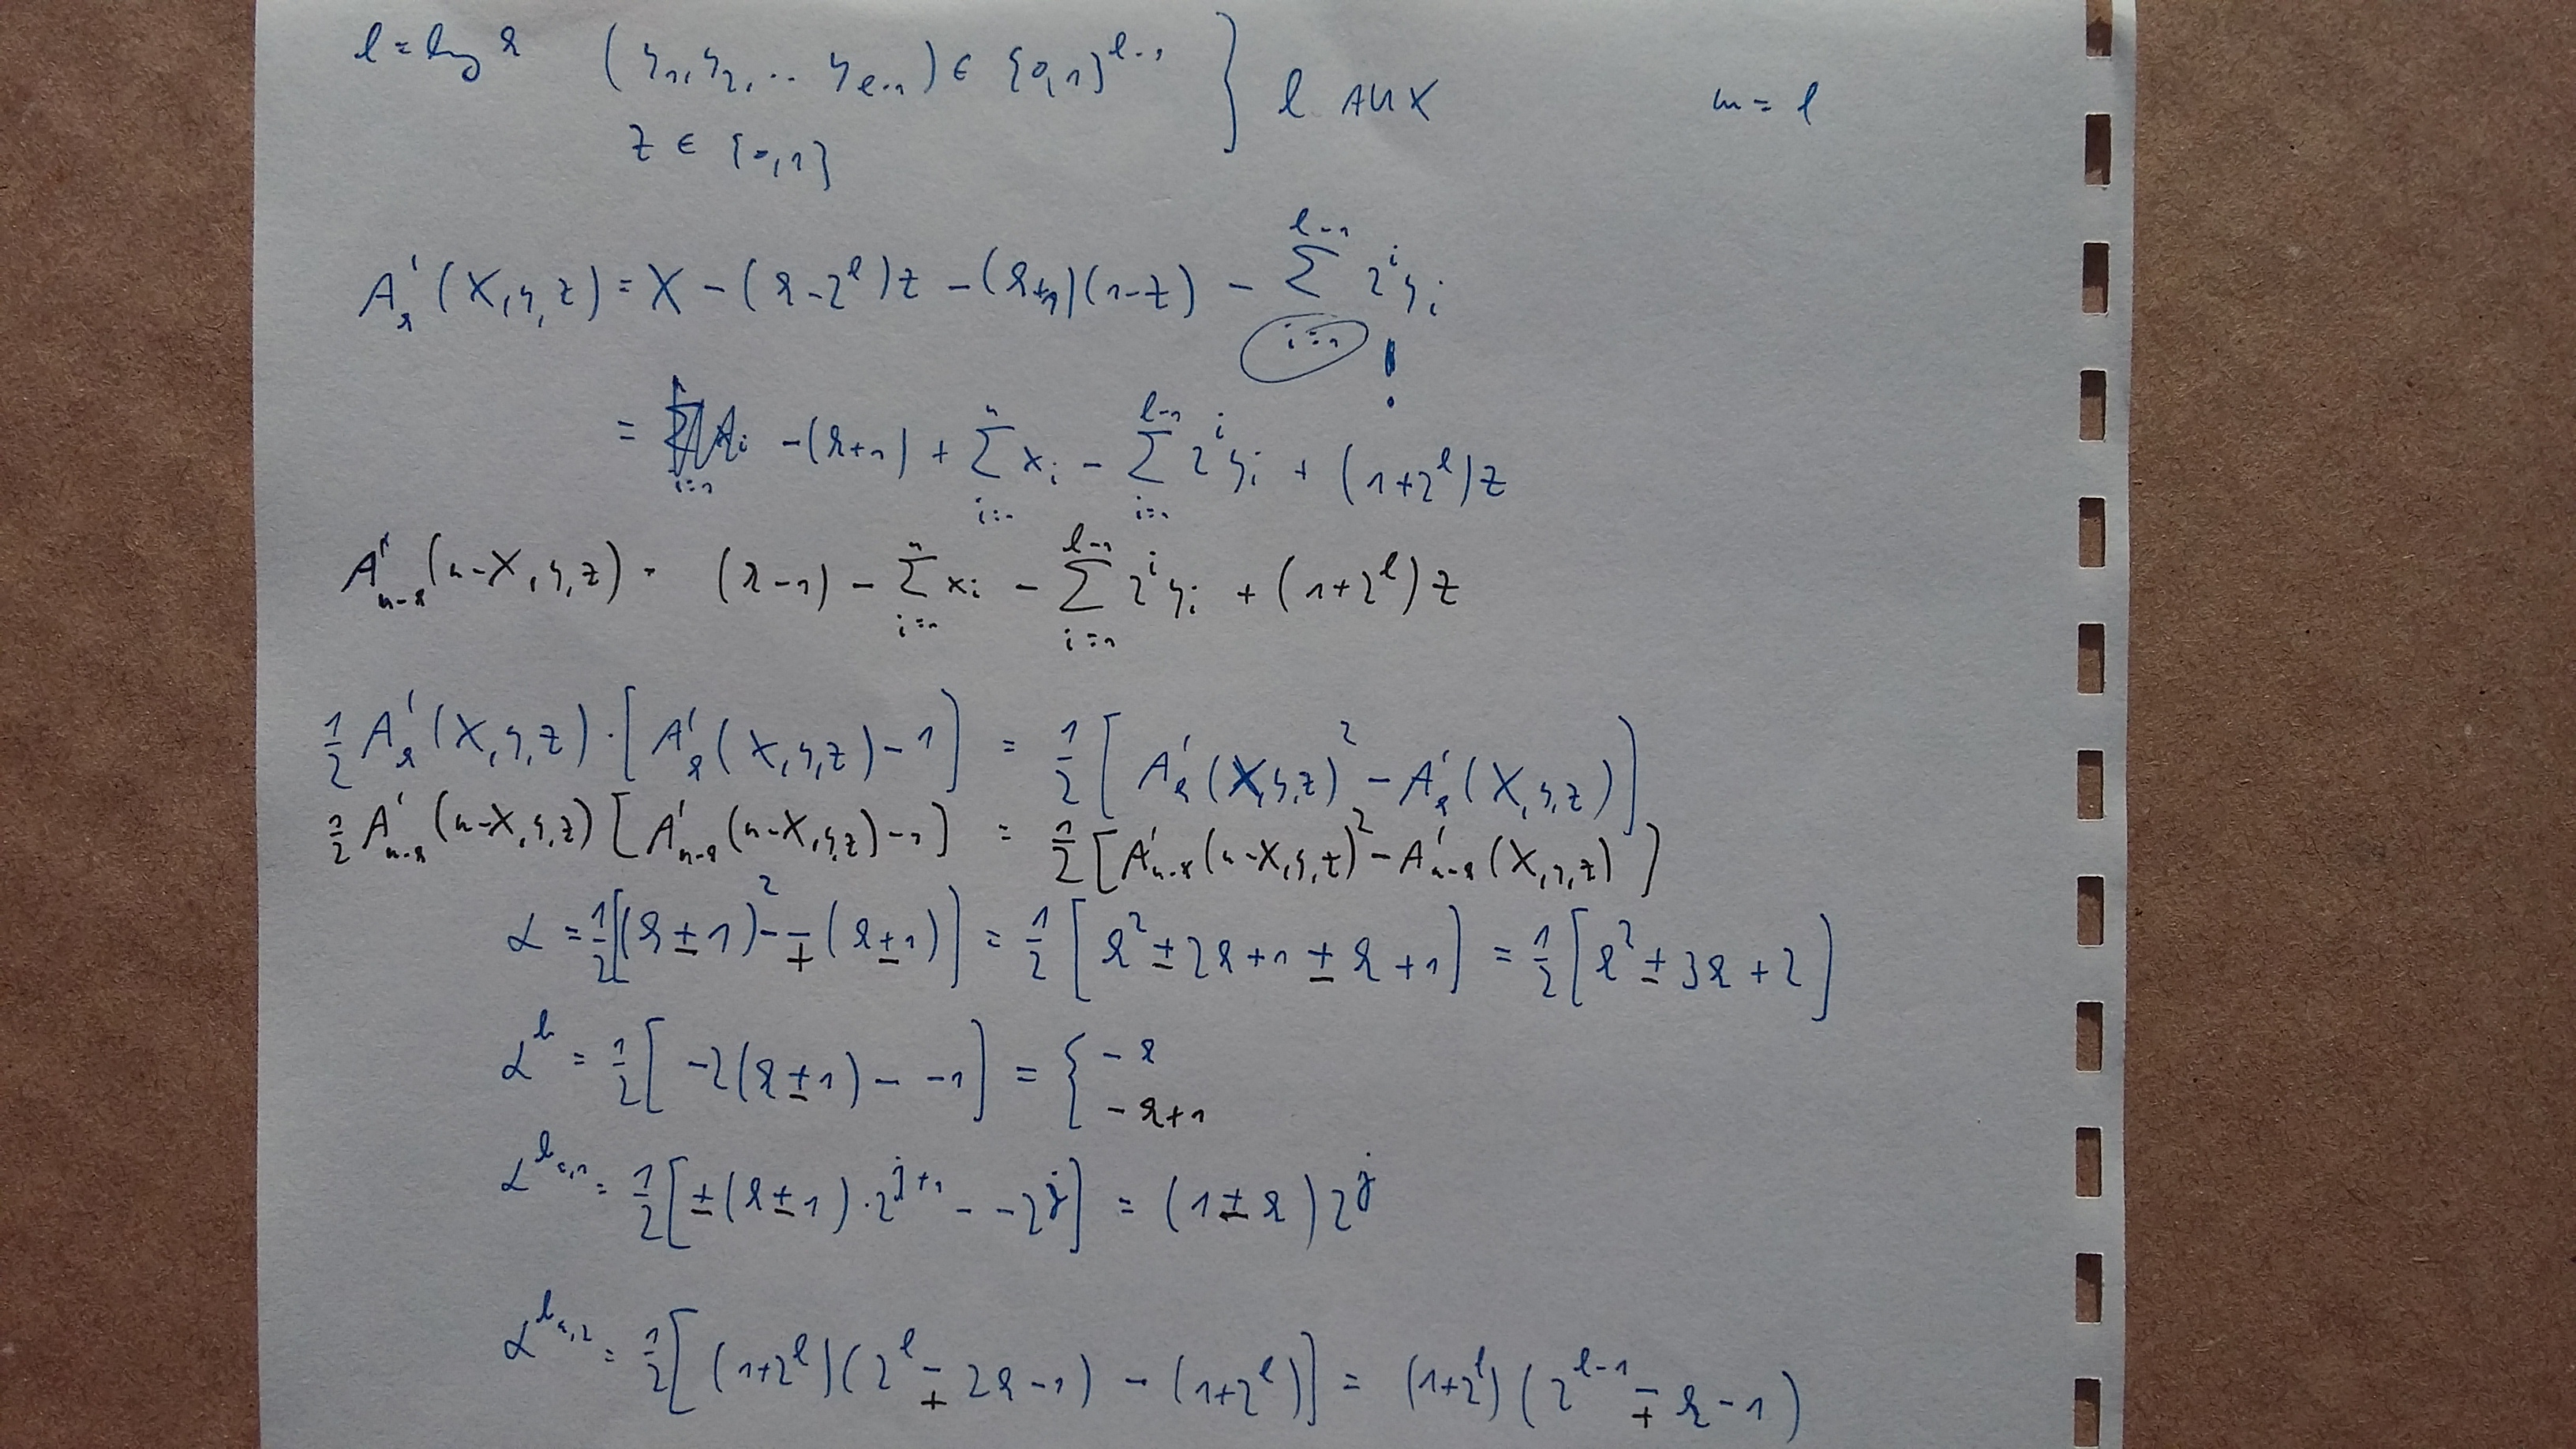 l = log k (y₁, y₂, ... y_{l-1}) ∈ {0,1}^{l-1} } l AUX m = l
z ∈ {0,1}
A'_k(X,y,z) = X - (k-2^l)z - (k+1)(1-z) - \sum_{i=1}^{l-1} 2^i y_i !
= -(k+1) + \sum_{i=1}^{n} x_i - \sum_{i=1}^{l-1} 2^i y_i + (1+2^l)z
A'_{n-k}(n-X,y,z) = (k-1) - \sum_{i=1}^{n} x_i - \sum_{i=1}^{l-1} 2^i y_i + (1+2^l)z
½ A'_k(X,y,z)·[A'_k(X,y,z)-1] = ½ [A'_k(X,y,z)² - A'_k(X,y,z)]
½ A'_{n-k}(n-X,y,z) [A'_{n-k}(n-X,y,z)-1] = ½ [A'_{n-k}(n-X,y,z)² - A'_{n-k}(X,y,z)]
α = ½[(k±1)² - ∓(k±1)] = ½ [k² ± 2k + 1 ± k + 1] = ½ [k² ± 3k + 2]
α^b = ½ [-2(k±1) - -1] = { -k
-k+1
α^{b_{a,1}} = ½ [±(k±1)·2^{j+1} - -2^j] = (1±k)2^j
α^{b_{a,2}} = ½ [(1+2^l)(2^l ∓ 2k-1) - (1+2^l)] = (1+2^l)(2^{l-1} ∓ k-1)